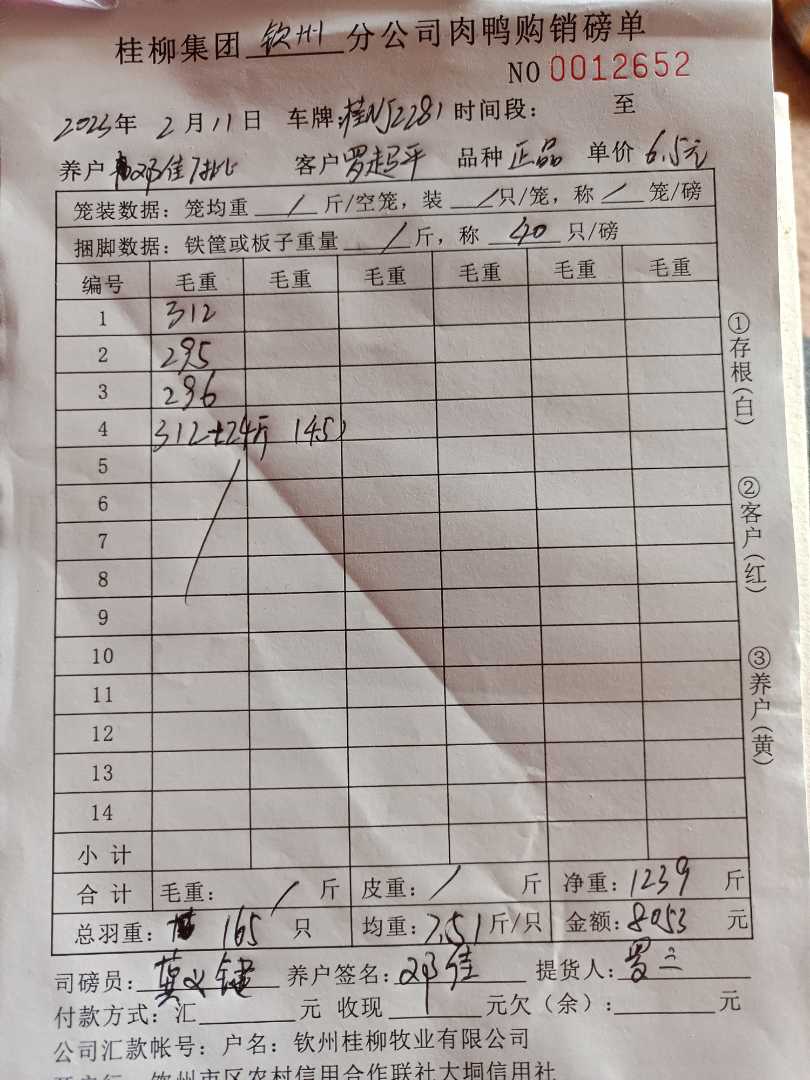 桂柳集团 钦州 分公司肉鸭购销磅单
NO 0012652
2023年 2月11日 车牌:桂NJ2281 时间段: 至
养户 邓佳 客户 罗超平 品种 正品 单价 6.5元
笼装数据:笼均重 / 斤/空笼,装 / 只/笼,称 / 笼/磅
捆脚数据:铁筐或板子重量 / 斤,称 40 只/磅
编号 毛重 毛重 毛重 毛重 毛重 毛重
1 312
2 295
3 296
4 312+24斤 (45)
5
6
7
8
9
10
11
12
13
14
小计
合计 毛重: / 斤 皮重: / 斤 净重:1239 斤
总羽重: 165 只 均重:7.51斤/只 金额:8053 元
司磅员: 莫义键 养户签名: 邓佳 提货人: 罗三
付款方式:汇 元 收现 元欠(余): 元
公司汇款帐号:户名:钦州桂柳牧业有限公司
开户行:钦州市区农村信用合作联社大垌信用社
①存根(白)
②客户(红)
③养户(黄)